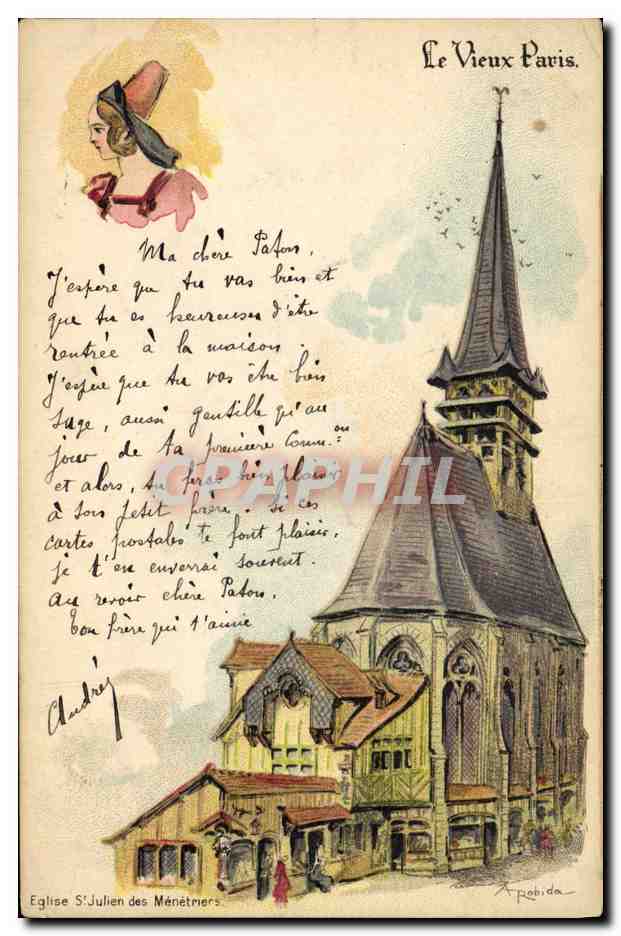 Le Vieux Paris.
Ma chère Paton,
J'espère que tu vas bien et
que tu es heureuse d'être
rentrée à la maison.
J'espère que tu vas être bien
sage, aussi gentille qu'au
jour de ta première Comm.on
et alors, tu feras bien plaisir
à ton petit frère. Si ces
cartes postales te font plaisir,
je t'en enverrai souvent.
Au revoir chère Paton,
Ton frère qui t'aime
André
CPAPHIL
A. Robida
Eglise St Julien des Ménétriers.